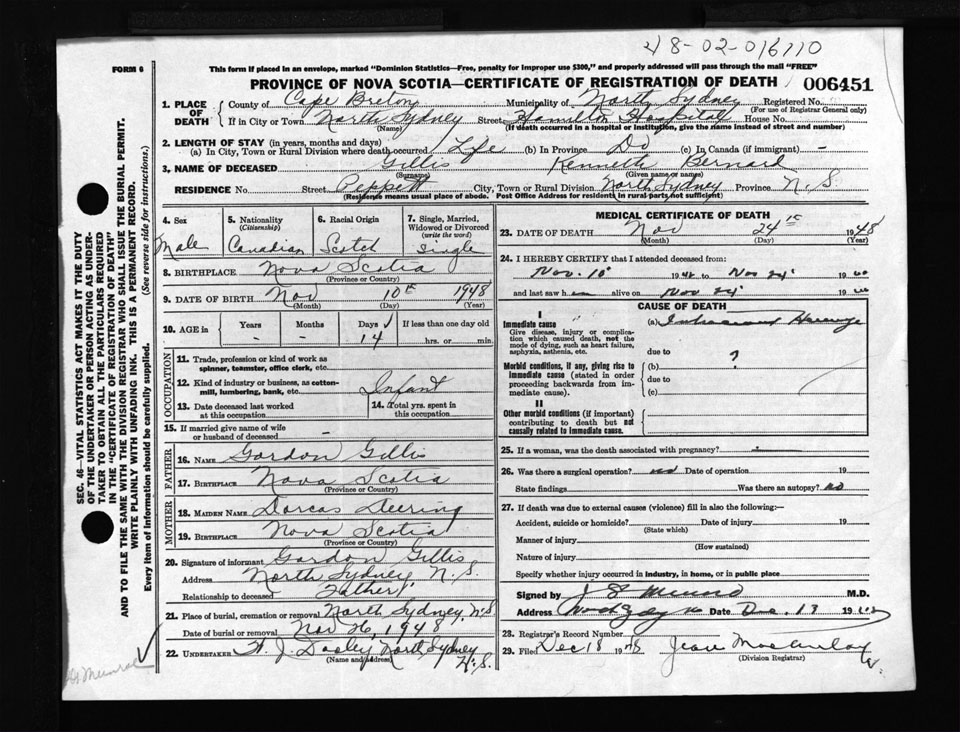 48-02-016710
FORM 8
This form if placed in an envelope, marked "Dominion Statistics—Free, penalty for improper use $300," and properly addressed will pass through the mail "FREE"
PROVINCE OF NOVA SCOTIA—CERTIFICATE OF REGISTRATION OF DEATH 006451
1. PLACE OF DEATH County of Cape Breton Municipality of North Sydney Registered No.
(For use of Registrar General only)
If in City or Town North Sydney Street Hamilton Hospital House No.
(Name) (If death occurred in a hospital or institution, give the name instead of street and number)
2. LENGTH OF STAY (in years, months and days)
(a) In City, Town or Rural Division where death occurred Life (b) In Province Do (c) In Canada (if immigrant) -
3. NAME OF DECEASED Gillis Kenneth Bernard
(Surname) (Given name or names)
RESIDENCE No. Street Peppett City, Town or Rural Division North Sydney Province N.S.
(Residence means usual place of abode. Post Office Address for residents in rural parts not sufficient)
4. Sex Male
5. Nationality (Citizenship) Canadian
6. Racial Origin Scotch
7. Single, Married, Widowed or Divorced (write the word) Single
8. BIRTHPLACE Nova Scotia
(Province or Country)
9. DATE OF BIRTH Nov 10th 1948
(Month) (Day) (Year)
10. AGE in Years Months Days If less than one day old
- - 14 hrs. or min.
OCCUPATION
11. Trade, profession or kind of work as spinner, teamster, office clerk, etc.
12. Kind of industry or business, as cotton-mill, lumbering, bank, etc. Infant
13. Date deceased last worked at this occupation
14. Total yrs. spent in this occupation
15. If married give name of wife or husband of deceased -
FATHER
16. NAME Gordon Gillis
17. BIRTHPLACE Nova Scotia
(Province or Country)
MOTHER
18. MAIDEN NAME Dorcas Deering
19. BIRTHPLACE Nova Scotia
(Province or Country)
20. Signature of informant Gordon Gillis
Address North Sydney, N.S.
Relationship to deceased Father
21. Place of burial, cremation or removal North Sydney, N.S
Date of burial or removal Nov 26, 1948
22. UNDERTAKER W. J. Dooley North Sydney
(Name and address) N.S.
MEDICAL CERTIFICATE OF DEATH
23. DATE OF DEATH Nov 24th 1948
(Month) (Day) (Year)
24. I HEREBY CERTIFY that I attended deceased from:
Nov. 10 1948 to Nov 24 19
and last saw h alive on Nov 24 19
CAUSE OF DEATH
I
Immediate cause (a)
Give disease, injury or complication which caused death, not the mode of dying, such as heart failure, asphyxia, asthenia, etc.
due to
Morbid conditions, if any, giving rise to immediate cause (stated in order proceeding backwards from immediate cause). (b) ?
due to
(c)
II
Other morbid conditions (if important) contributing to death but not causally related to immediate cause.
25. If a woman, was the death associated with pregnancy? -
26. Was there a surgical operation? no Date of operation 19
State findings Was there an autopsy? no
27. If death was due to external causes (violence) fill in also the following:—
Accident, suicide or homicide? Date of injury 19
(State which)
Manner of injury
(How sustained)
Nature of injury
Specify whether injury occurred in industry, in home, or in public place
Signed by Munro M.D.
Address Date Dec. 13 19
28. Registrar's Record Number
29. Filed Dec 18 1948 Jean MacAulay
(Division Registrar)
SEC. 46—VITAL STATISTICS ACT MAKES IT THE DUTY
OF THE UNDERTAKER OR PERSON ACTING AS UNDERTAKER TO OBTAIN ALL THE PARTICULARS REQUIRED
IN THE "CERTIFICATE OF REGISTRATION OF DEATH"
AND TO FILE THE SAME WITH THE DIVISION REGISTRAR WHO SHALL ISSUE THE BURIAL PERMIT.
WRITE PLAINLY WITH UNFADING INK. THIS IS A PERMANENT RECORD.
Every item of information should be carefully supplied. (See reverse side for instructions.)
Munro